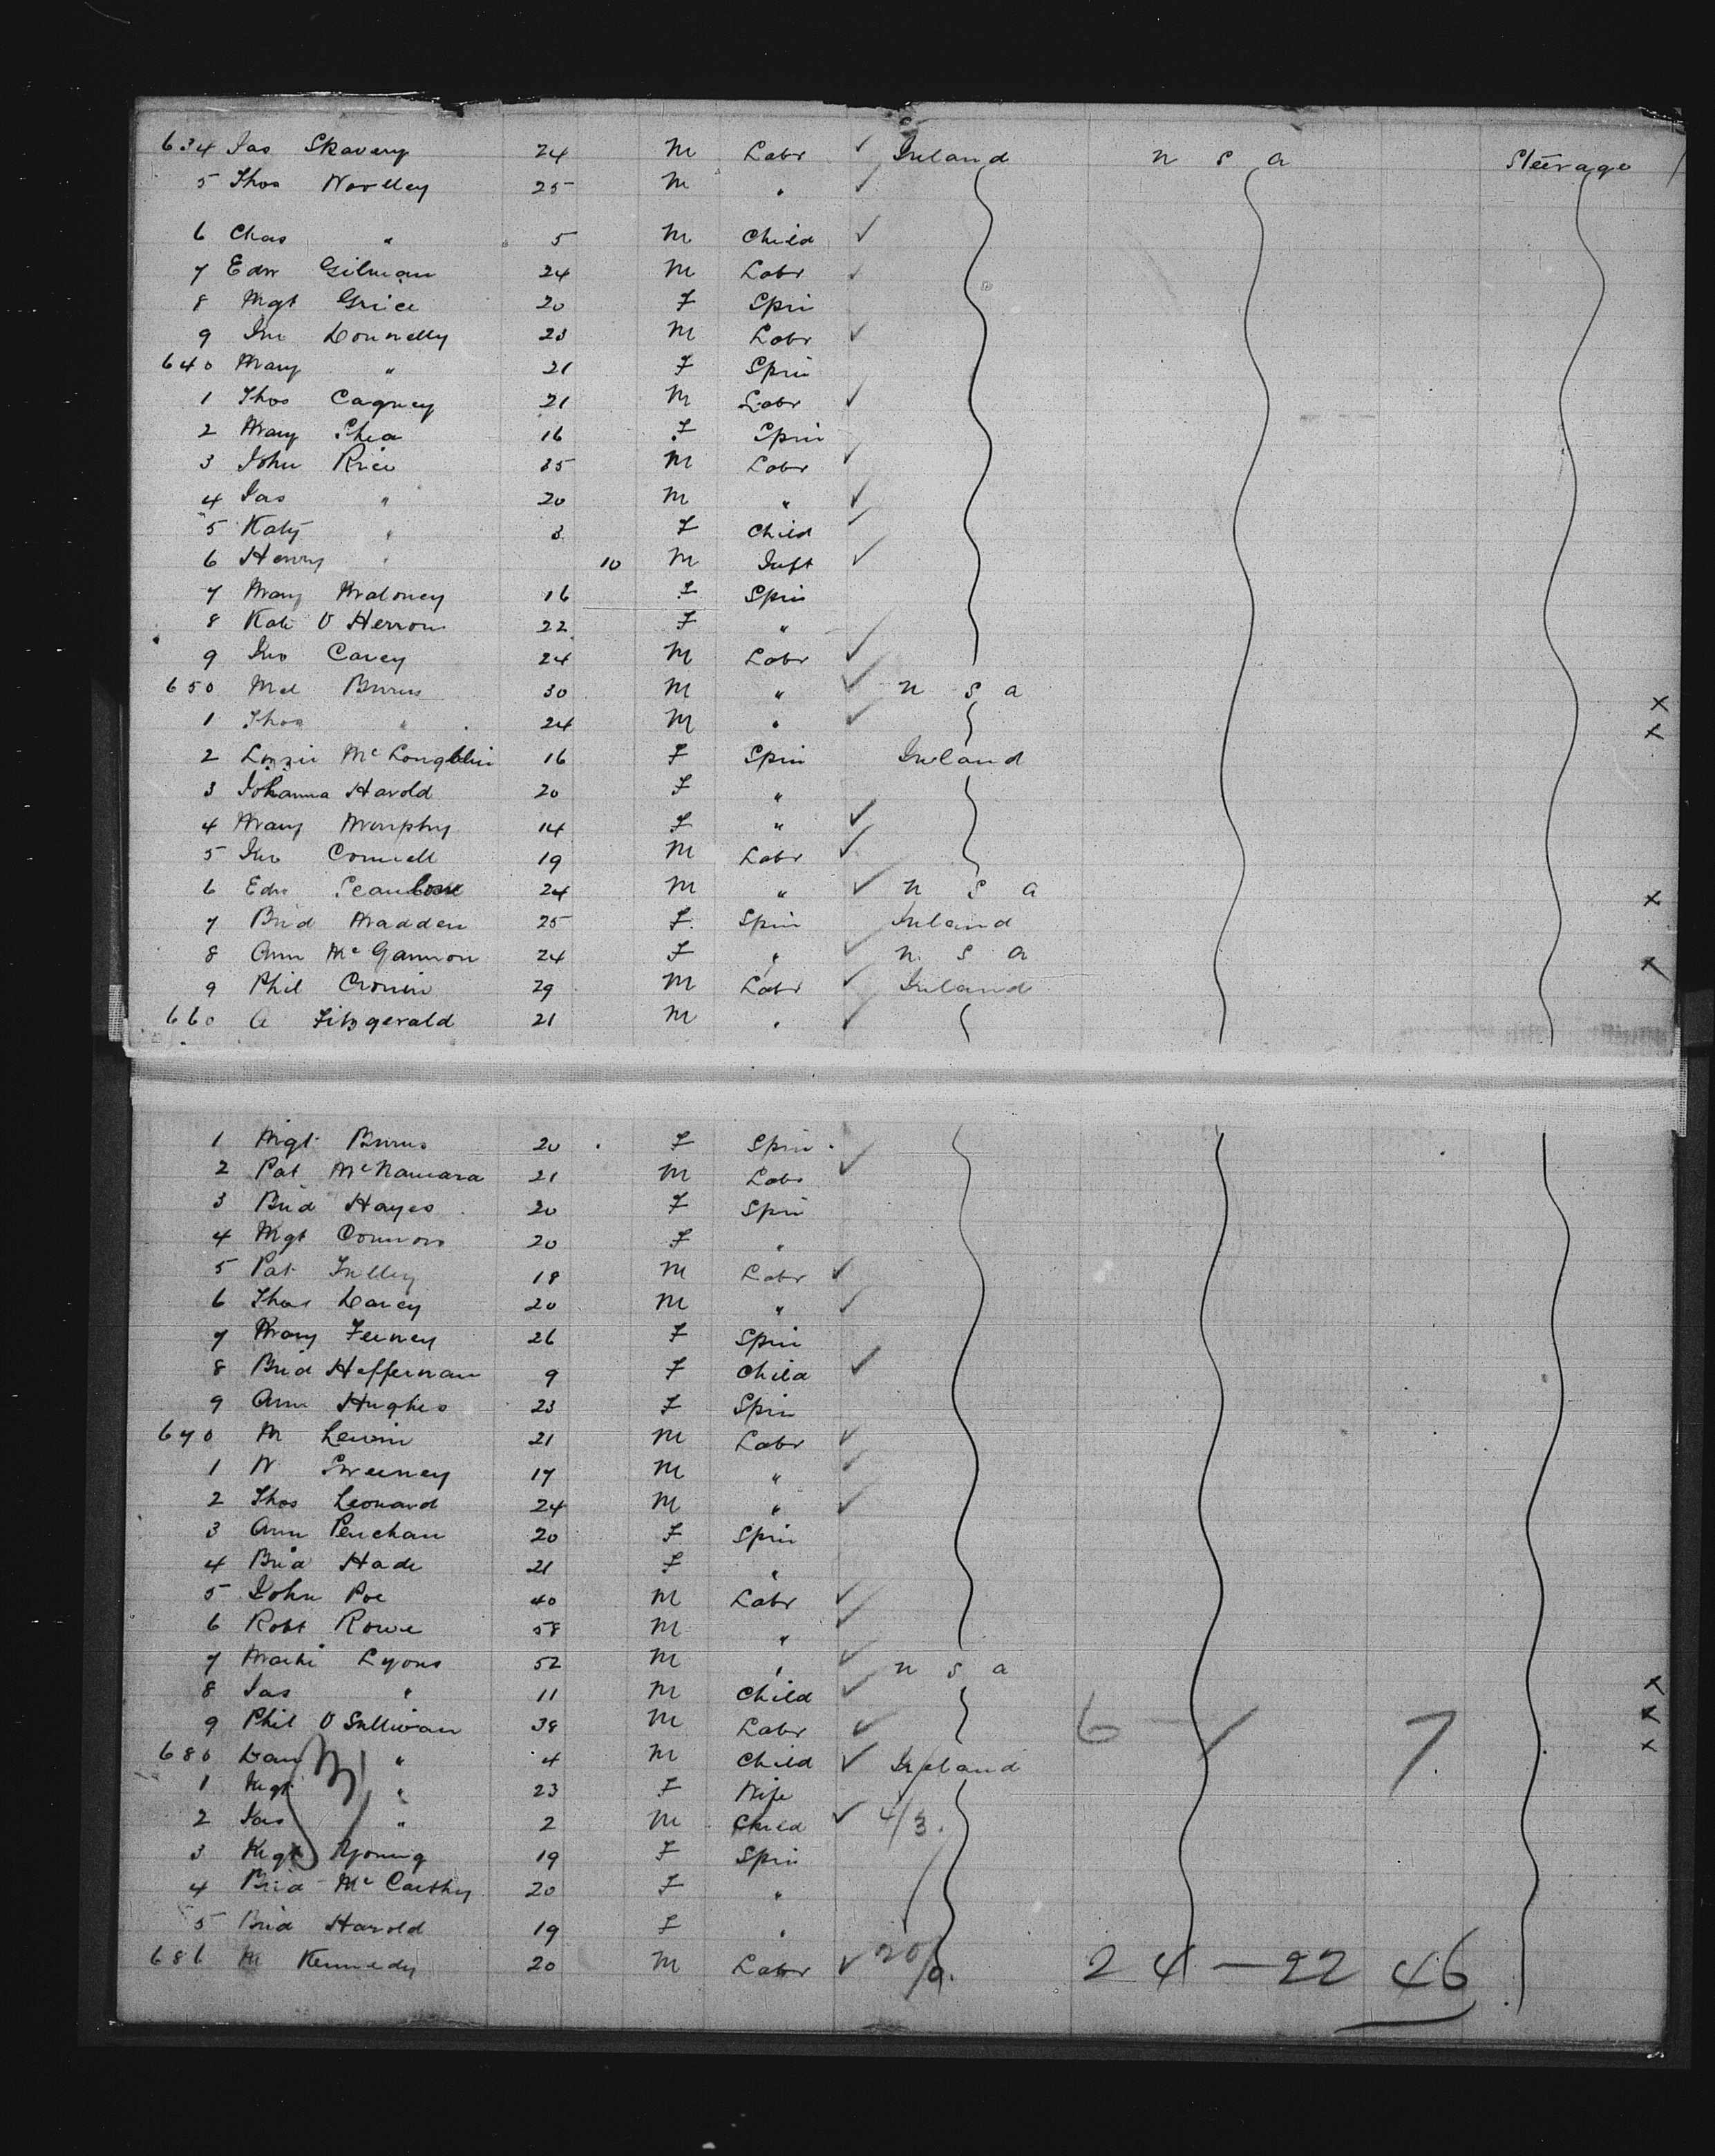 634 Jas Skavery 24 M Labr ✓ Ireland U S A Steerage
5 Thos Worlley 25 M " ✓
6 Chas " 5 M Child ✓
7 Edw Gilman 24 M Labr ✓
8 Mgt Grice 20 F Spin
9 Jno Donnelly 23 M Labr ✓
640 Mary " 21 F Spin
1 Thos Cagney 21 M Labr ✓
2 Mary Shea 16 F Spin
3 John Rice 35 M Labr ✓
4 Jas " 20 M " ✓
5 Katy " 3 F Child ✓
6 Henry " 10 M Inft ✓
7 Mary Maloney 16 F Spin
8 Kate O Herron 22 F "
9 Jno Carey 24 M Labr ✓
650 Ml Burns 30 M " ✓ U S A x
1 Thos " 24 M " ✓ x
2 Lizzie McLoughlin 16 F Spin Ireland
3 Johanna Harold 20 F "
4 Mary Murphy 14 F " ✓
5 Jno Connell 19 M Labr ✓
6 Edw Scanlon 24 M " ✓ U S A x
7 Brid Madden 25 F Spin Ireland
8 Ann McGannon 24 F " ✓ U S A x
9 Phil Cronin 29 M Labr ✓ Ireland
660 A Fitzgerald 21 M " ✓
1 Mgt Burns 20 F Spin
2 Pat McNamara 21 M Labr ✓
3 Brid Hayes 20 F Spin
4 Mgt Connors 20 F "
5 Pat 18 M Labr ✓
6 Thos Darcy 20 M " ✓
7 Mary Feeney 26 F Spin
8 Brid Heffernan 9 F Child ✓
9 Ann Hughes 23 F Spin
670 M 21 M Labr ✓
1 W Sweeney 17 M " ✓
2 Thos Leonard 24 M " ✓
3 Ann 20 F Spin
4 Brid Hade 21 F "
5 John Poe 40 M Labr ✓
6 Robt Rowe 58 M " ✓
7 Lyons 52 M " ✓ U S A
8 Jas " 11 M Child ✓ x
9 Phil O Sullivan 38 M Labr ✓ 6 — 1 7 x
680 Dan " 4 M Child ✓ Ireland x
1 Mgt " 23 F Wife
2 Jas " 2 M Child ✓ 4/3.
3 Mgt Young 19 F Spin
4 Brid McCarthy 20 F "
5 Brid Harold 19 F "
686 M Kennedy 20 M Labr ✓ 20/9. 24 — 22 46